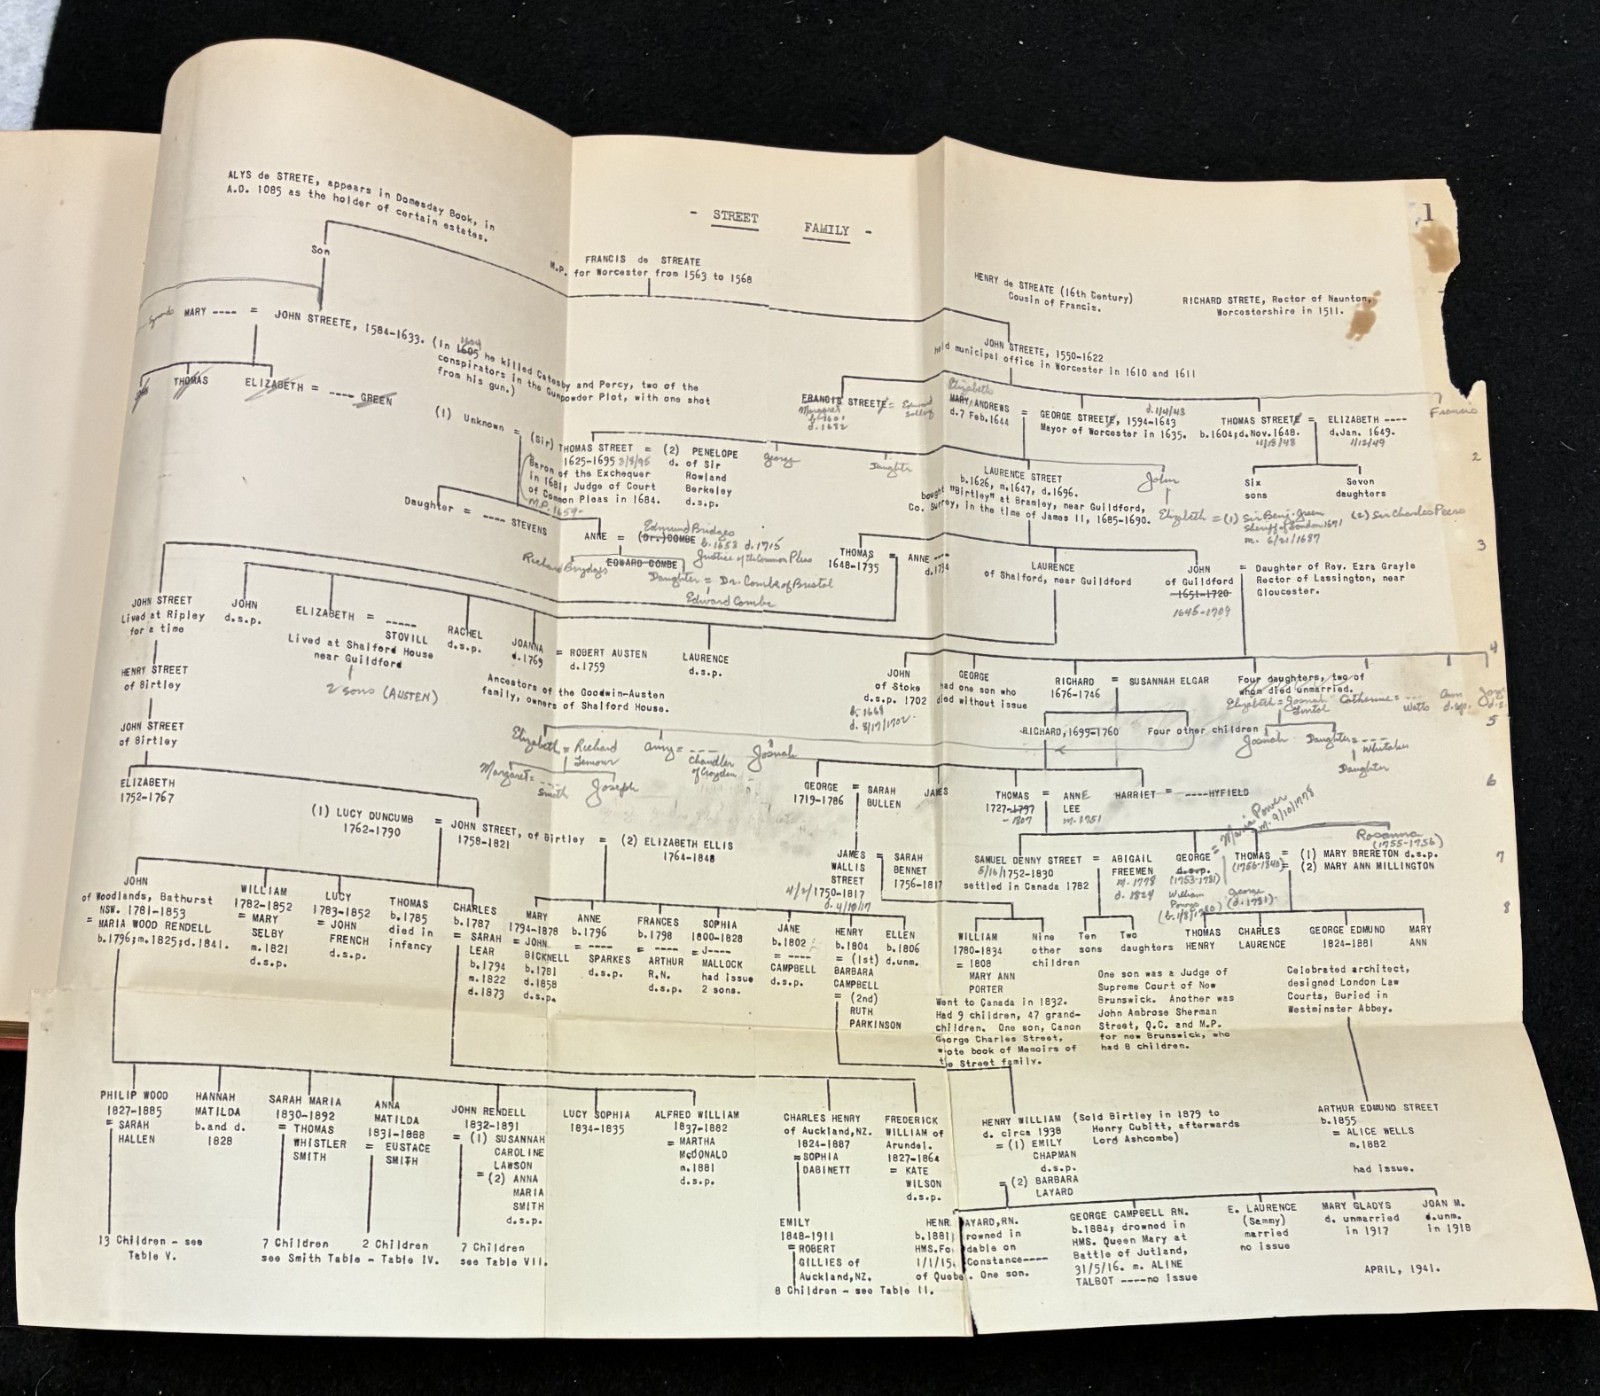 1
- STREET FAMILY -
ALYS de STRETE, appears in Domesday Book, in
A.D. 1085 as the holder of certain estates.
Son
FRANCIS de STREATE
M.P. for Worcester from 1563 to 1568
HENRY de STREATE (16th Century)
Cousin of Francis.
RICHARD STRETE, Rector of Naunton,
Worcestershire in 1511.
MARY ---- = JOHN STREETE, 1584-1633. (In 1605 he killed Catesby and Percy, two of the
conspirators in the Gunpowder Plot, with one shot
from his gun.)
JOHN STREETE, 1550-1622
held municipal office in Worcester in 1610 and 1611
THOMAS
ELIZABETH = ---- GREEN
FRANCIS STREETE = Edward
Margaret
d. 1682
Elizabeth
MARY ANDREWS
d.7 Feb.1644
=
d.1/4/43
GEORGE STREETE, 1594-1643
Mayor of Worcester in 1635.
THOMAS STREETE
b.1604;d.Nov.1648.
11/13/48
=
ELIZABETH ----
d.Jan. 1649.
1/12/49
Francis
2
(1) Unknown =
(Sir) THOMAS STREET
1625-1695 3/8/95
Baron of the Exchequer
in 1681; Judge of Court
of Common Pleas in 1684.
M.P. 1659-
= (2) PENELOPE
d. of Sir
Rowland
Berkeley
d.s.p.
George
Daughter
LAURENCE STREET
b.1626, m.1647, d.1696.
bought "Birtley" at Bramley, near Guildford,
Co. Surrey, in the time of James II, 1685-1690.
John
Elizabeth = (1) Sir Benj. Green
Sheriff of London 1691
m. 6/21/1687
(2) Sir Charles Peers
Six
sons
Seven
daughters
Daughter = ---- STEVENS
ANNE =
Edmund Bridges
(Dr.) COMBE b. 1658 d. 1715
Justice of the Common Pleas
Richard Brydges
EDWARD COMBE
Daughter = Dr. Combe of Bristol
Edward Combe
3
THOMAS
1648-1735
=
ANNE ---
LAURENCE
of Shalford, near Guildford
JOHN
of Guildford
1651-1720
1645-1709
=
Daughter of Rev. Ezra Grayle
Rector of Lassington, near
Gloucester.
JOHN STREET
Lived at Ripley
for a time
JOHN
d.s.p.
ELIZABETH = -----
STOVILL
Lived at Shalford House
near Guildford
2 sons (AUSTEN)
RACHEL
d.s.p.
JOANNA
d.1769
= ROBERT AUSTEN
d.1759
Ancestors of the Goodwin-Austen
family, owners of Shalford House.
LAURENCE
d.s.p.
4
JOHN
of Stoke
d.s.p. 1702
b. 1668
d. 8/17/1702.
GEORGE
had one son who
died without issue
RICHARD
1676-1746
= SUSANNAH ELGAR
Four daughters, two of
whom died unmarried.
Elizabeth = Josiah
Catherine = ---
Watts
Ann
d.sp.
HENRY STREET
of Birtley
5
RICHARD, 1699-1760
Four other children
Josiah
Daughter = ---
Whitaker
Daughter
JOHN STREET
of Birtley
Elizabeth = Richard
Amy = ---
Chandler
of Croydon
Josiah
Margaret = ---
Smith
Joseph
6
ELIZABETH
1752-1767
GEORGE
1719-1786
= SARAH
BULLEN
JAMES
THOMAS
1727-1797
- 1807
= ANNE
LEE
m. 1751
HARRIET = ----HYFIELD
(1) LUCY DUNCUMB
1762-1790
= JOHN STREET, of Birtley
1758-1821
= (2) ELIZABETH ELLIS
1764-1848
7
JAMES
WALLIS
STREET
4/2/1750-1817
d. 4/10/17
= SARAH
BENNET
1756-1817
SAMUEL DENNY STREET
5/16/1752-1830
settled in Canada 1782
= ABIGAIL
FREEMEN
m. 1778
d. 1824
GEORGE
d.s.p.
(1753-1781)
= Maria Power
m. 9/10/1778
William
(b. 1/8/1780)
George
(d. 1781).
THOMAS
(1756-1843)
= (1) MARY BRERETON d.s.p.
(2) MARY ANN MILLINGTON
Rosanna
(1755-1756)
8
JOHN
of Woodlands, Bathurst
NSW. 1781-1853
= MARIA WOOD RENDELL
b.1796;m.1825;d.1841.
WILLIAM
1782-1852
= MARY
SELBY
m.1821
d.s.p.
LUCY
1783-1852
= JOHN
FRENCH
d.s.p.
THOMAS
b.1785
died in
infancy
CHARLES
b.1787
= SARAH
LEAR
b.1794
m.1822
d.1873
MARY
1794-1878
= JOHN
BICKNELL
b.1781
d.1858
d.s.p.
ANNE
b.1796
= ----
SPARKES
d.s.p.
FRANCES
b.1798
= ----
ARTHUR
R.N.
d.s.p.
SOPHIA
1800-1828
= J----
MALLOCK
had issue
2 sons.
JANE
b.1802
= ----
CAMPBELL
d.s.p.
HENRY
b.1804
= (1st)
BARBARA
CAMPBELL
= (2nd)
RUTH
PARKINSON
ELLEN
b.1806
d.unm.
WILLIAM
1780-1834
= 1808
MARY ANN
PORTER
Went to Canada in 1832.
Had 9 children, 47 grand-
children. One son, Canon
George Charles Street,
wrote book of Memoirs of
the Street family.
Nine
other
children
Ten
sons
Two
daughters
One son was a Judge of
Supreme Court of New
Brunswick. Another was
John Ambrose Sherman
Street, Q.C. and M.P.
for new Brunswick, who
had 8 children.
THOMAS
HENRY
CHARLES
LAURENCE
GEORGE EDMUND
1824-1881
Celebrated architect,
designed London Law
Courts, Buried in
Westminster Abbey.
MARY
ANN
PHILIP WOOD
1827-1885
= SARAH
HALLEN
13 Children - see
Table V.
HANNAH
MATILDA
b.and d.
1828
SARAH MARIA
1830-1892
= THOMAS
WHISTLER
SMITH
7 Children
see Smith Table - Table IV.
ANNA
MATILDA
1831-1868
= EUSTACE
SMITH
2 Children
JOHN RENDELL
1832-1891
= (1) SUSANNAH
CAROLINE
LAWSON
= (2) ANNA
MARIA
SMITH
d.s.p.
7 Children
see Table VII.
LUCY SOPHIA
1834-1835
ALFRED WILLIAM
1837-1882
= MARTHA
McDONALD
m.1881
d.s.p.
CHARLES HENRY
of Auckland,NZ.
1824-1887
= SOPHIA
DABINETT
EMILY
1848-1911
= ROBERT
GILLIES of
Auckland,NZ.
8 Children - see Table II.
FREDERICK
WILLIAM of
Arundel.
1827-1864
= KATE
WILSON
d.s.p.
HENRY WILLIAM
d. circa 1938
= (1) EMILY
CHAPMAN
d.s.p.
= (2) BARBARA
LAYARD
(Sold Birtley in 1879 to
Henry Cubitt, afterwards
Lord Ashcombe)
ARTHUR EDMUND STREET
b.1855
= ALICE WELLS
m.1882
had issue.
HENR AYARD,RN.
b.1881; rowned in
HMS.Fo dable on
1/1/15. Constance----
of Quebe . One son.
GEORGE CAMPBELL RN.
b.1884; drowned in
HMS. Queen Mary at
Battle of Jutland,
31/5/16. m. ALINE
TALBOT ----no issue
E. LAURENCE
(Sammy)
married
no issue
MARY GLADYS
d. unmarried
in 1917
JOAN M.
d.unm.
in 1918
APRIL, 1941.